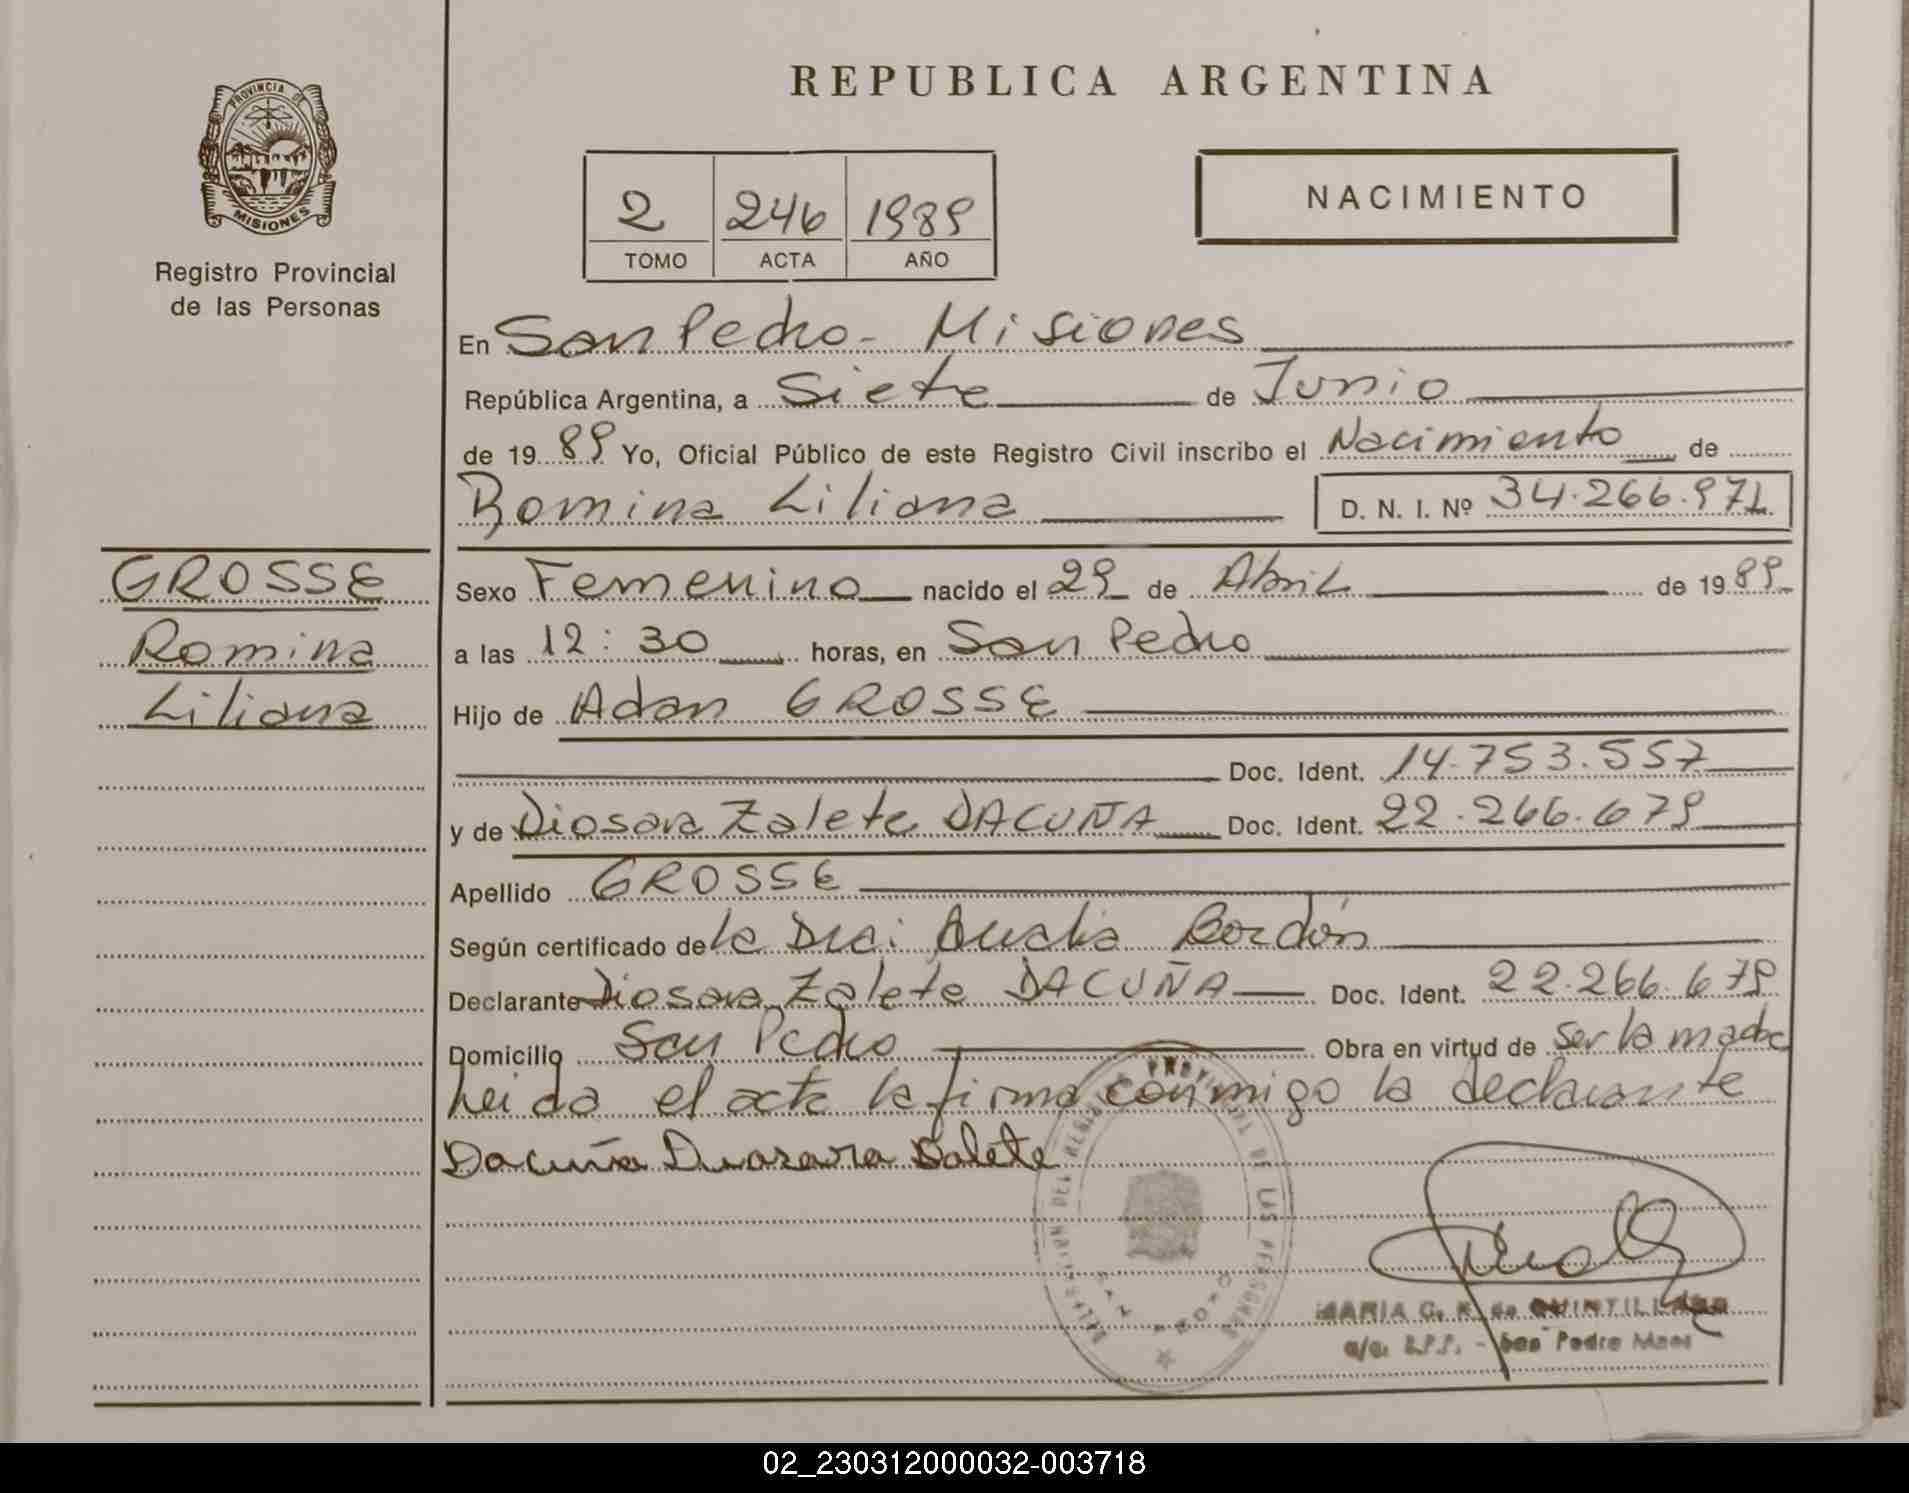 REPUBLICA ARGENTINA
PROVINCIA DE
MISIONES
Registro Provincial
de las Personas
2 246 1989
TOMO ACTA AÑO
NACIMIENTO
En San Pedro - Misiones
República Argentina, a Siete de Junio
de 19 89 Yo, Oficial Público de este Registro Civil inscribo el Nacimiento de
Romina Liliana D. N. I. Nº 34.266.971
GROSSE
Romina
Liliana
Sexo Femenino nacido el 29 de Abril de 19 89
a las 12:30 horas, en San Pedro
Hijo de Adan GROSSE
Doc. Ident. 14.753.557
y de Diosara Zalete DACUÑA Doc. Ident. 22.266.679
Apellido GROSSE
Según certificado de la Bordón
Declarante Diosara Zalete DACUÑA Doc. Ident. 22.266.679
Domicilio San Pedro Obra en virtud de Ser la madre
Leida el acta la firma conmigo la declarante
Dacuña Salete
MARIA C. R. de QUINTILLANO
San Pedro Mnes
02_230312000032-003718